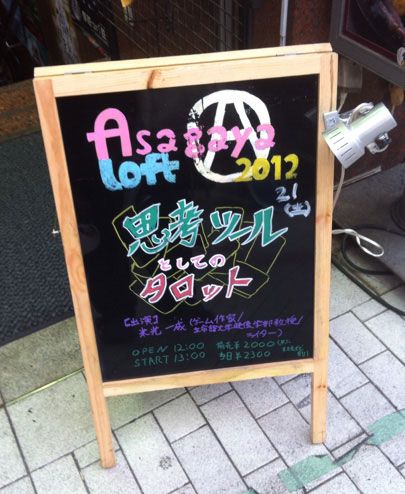 Asagaya
Loft A 2012
21(土)
思考ツール
としての
タロット
【出演】
米光 一成(ゲーム作家/
立命館大学映像学部教授/
ライター)
OPEN 12:00 前売¥2000
START 13:00 当日¥2300